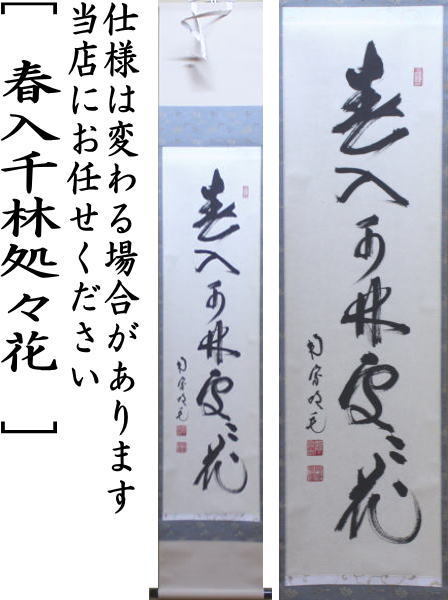 仕様は変わる場合があります
当店にお任せください
［ 春入千林処々花 ］
春入千林處々花
春入千林處々花